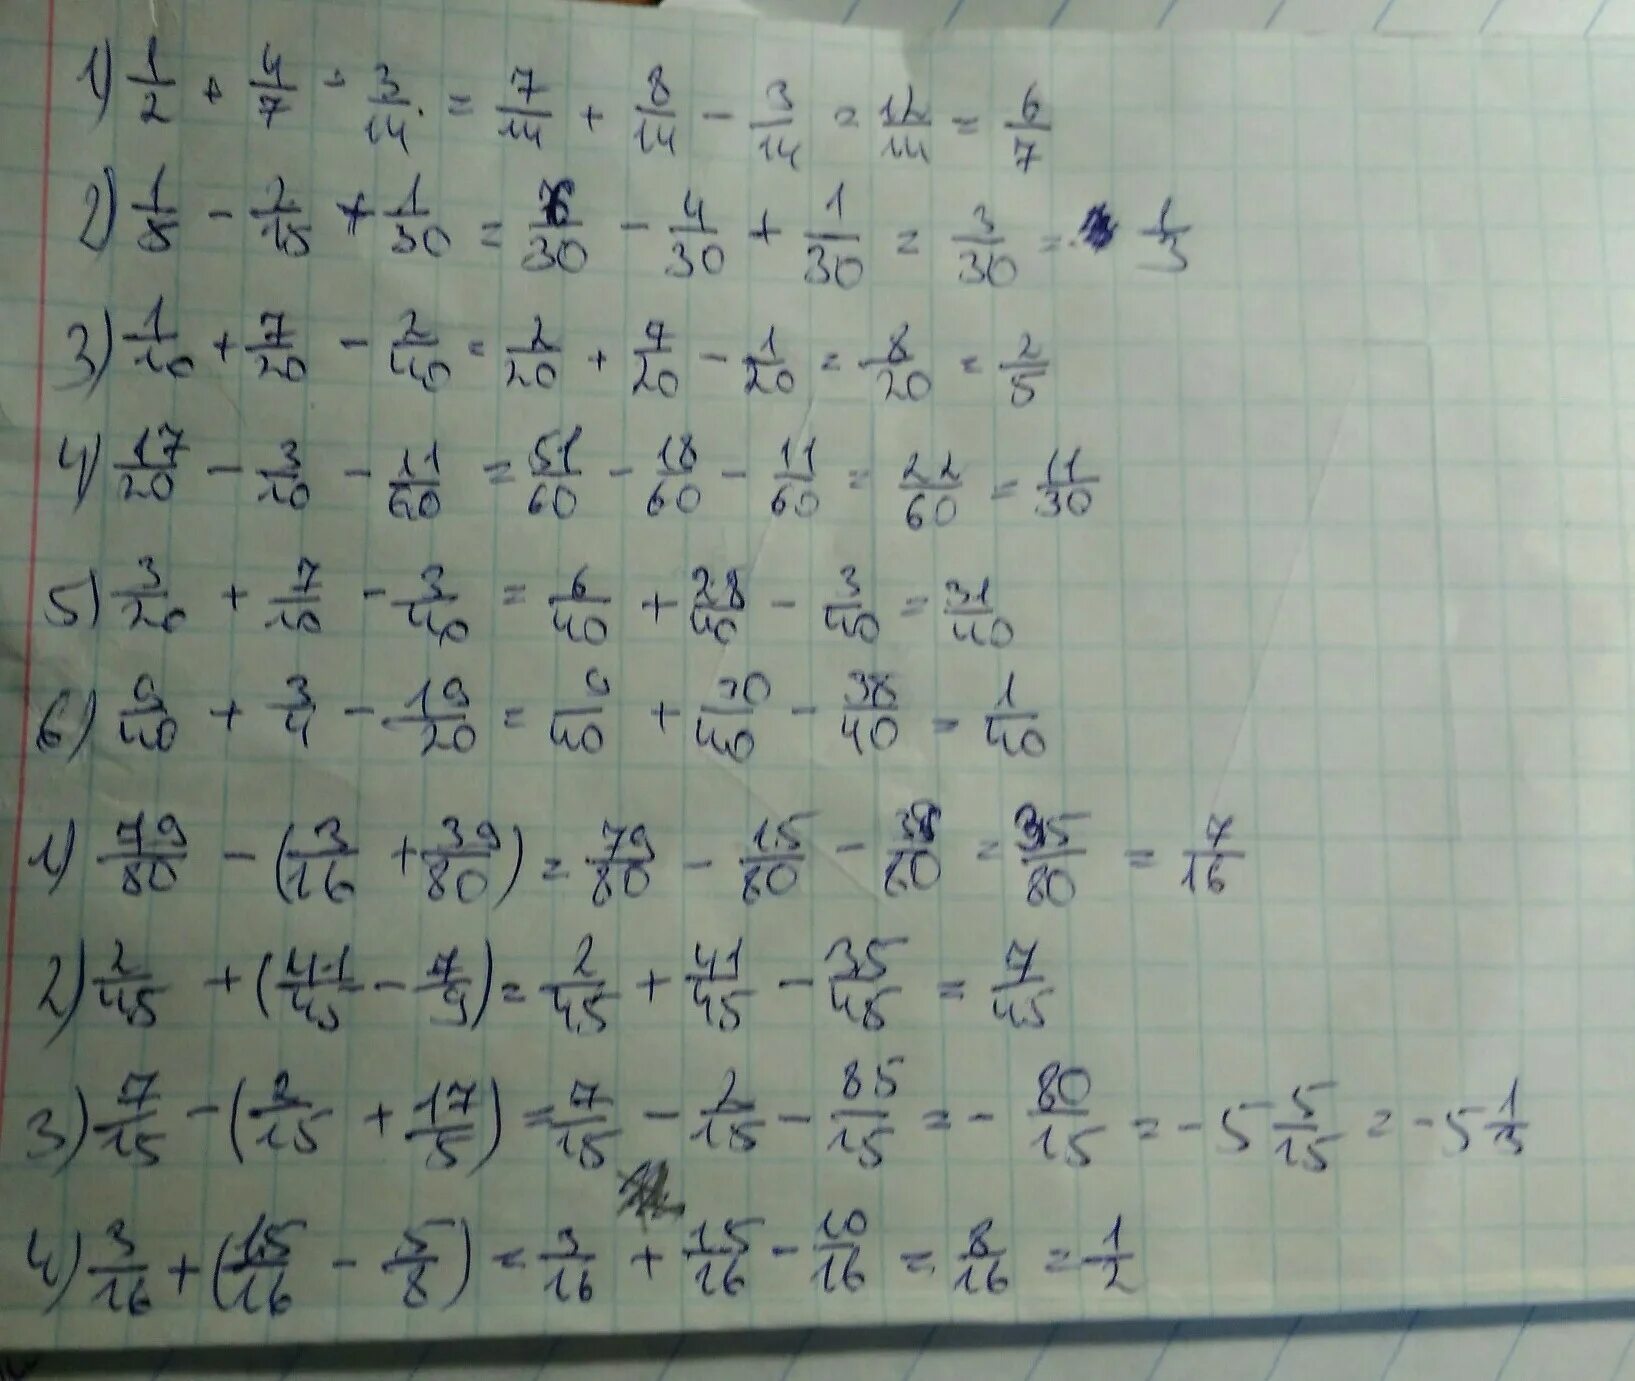 1) 1/2 + 4/7 - 3/14 = 7/14 + 8/14 - 3/14 = 12/14 = 6/7
2) 1/5 - 2/15 + 1/30 = 6/30 - 4/30 + 1/30 = 3/30 = 1/3
3) 1/10 + 7/20 - 2/40 = 2/20 + 7/20 - 1/20 = 8/20 = 2/5
4) 17/20 - 3/10 - 11/60 = 51/60 - 18/60 - 11/60 = 22/60 = 11/30
5) 3/20 + 7/10 - 3/40 = 6/40 + 28/40 - 3/40 = 31/40
6) 9/40 + 3/4 - 19/20 = 9/40 + 30/40 - 38/40 = 1/40
1) 79/80 - (3/16 + 39/80) = 79/80 - 15/80 - 39/80 = 35/80 = 7/16
2) 2/45 + (41/45 - 7/9) = 2/45 + 41/45 - 35/45 = 7/45
3) 7/15 - (2/15 + 17/5) = 7/15 - 2/15 - 85/15 = - 80/15 = - 5 5/15 = - 5 1/3
4) 3/16 + (15/16 - 5/8) = 3/16 + 15/16 - 10/16 = 8/16 = 1/2